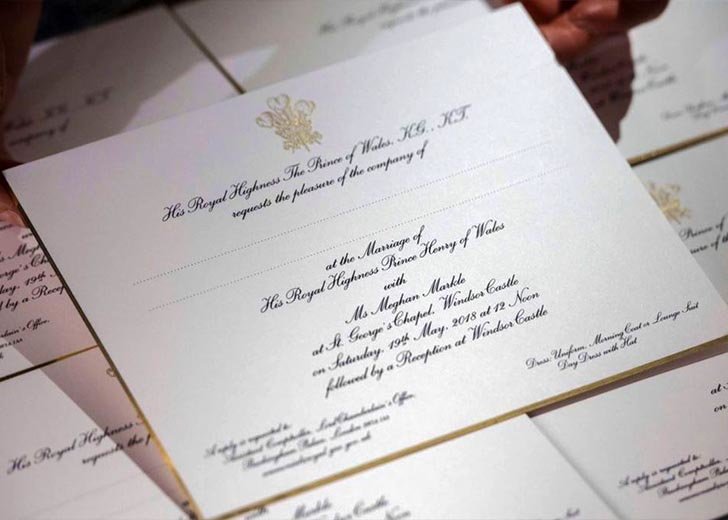 His Royal Highness The Prince of Wales, K.G., K.T.
requests the pleasure of the company of
at the Marriage of
His Royal Highness Prince Henry of Wales
with
Ms Meghan Markle
at St. George's Chapel, Windsor Castle
on Saturday, 19th May, 2018 at 12 Noon
followed by a Reception at Windsor Castle
Dress: Uniform, Morning Coat or Lounge Suit
Day Dress with Hat
A reply is requested to:
Assistant Comptroller, Lord Chamberlain's Office,
Buckingham Palace, London
company of
Prince of
pleasure of the
St. George's Cha
Saturday, 19th
followed by a Recep
Chamberlain's Office,
His Royal Highness
requests the
Meghan Markle
Windsor Castle
at
on
A reply is requested to:
Assistant Comptroller,
Buckingham Palace,